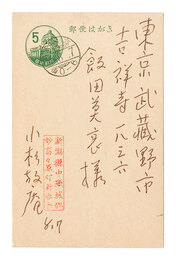 郵便はがき
5
東京武蔵野市
吉祥寺一八三六
飯田莫哀様
新潟縣中頸城郡
小杉放庵